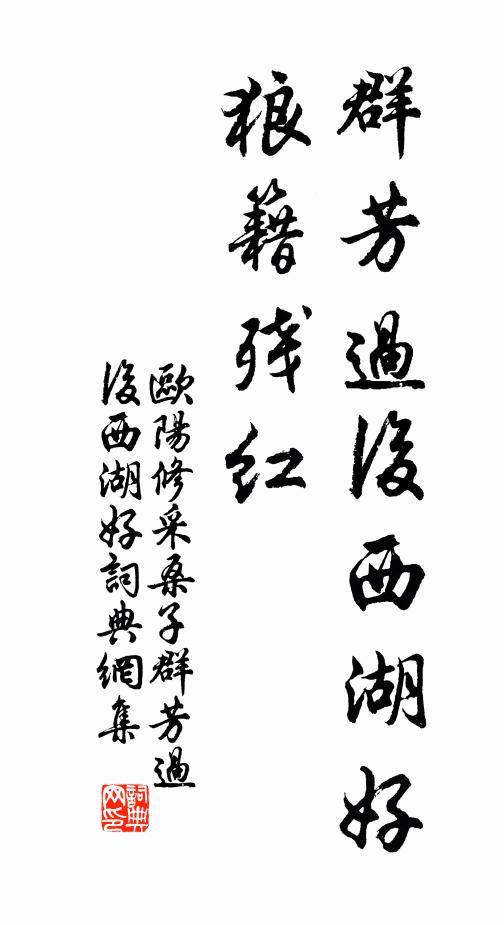 群芳過後西湖好
狼籍残紅
歐陽修采桑子群芳過
後西湖好詞典網集
詞典网印